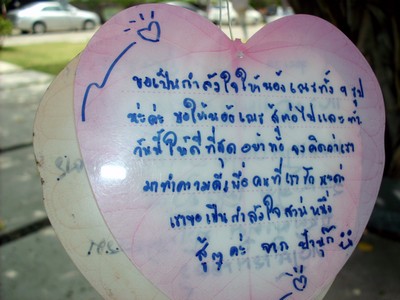 ขอเป็นกำลังใจให้น้องเณรทั้ง ๆ รูป
น่ะค่ะ ขอให้น้องเณร สู้ต่อไปและทำ
วันนี้ให้ดีที่สุด อย่าท้อ จงคิดว่าเรา
มาทำความดีเพื่อ คนที่เรารัก นะค่ะ
เราขอเป็นกำลังใจส่วนหนึ่ง
สู้ๆ ค่ะ จาก ป้านุ๊ก